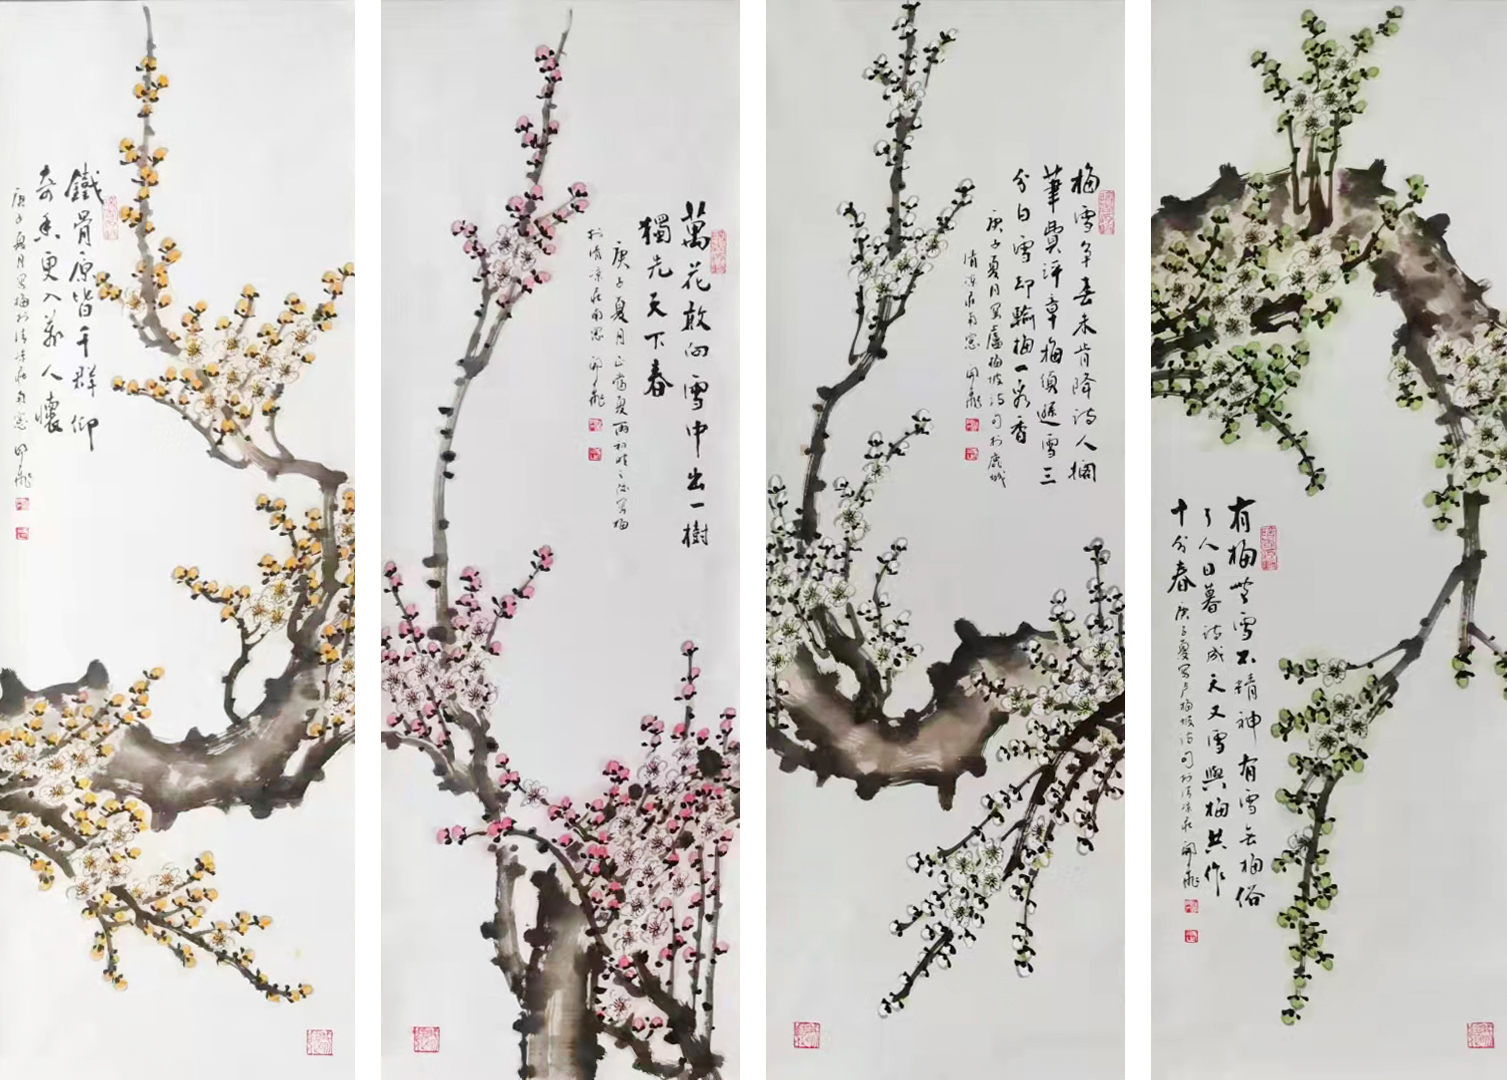 鐵骨原皆千群仰
奇香更入萬人懷
庚子夏月寫梅於清凉莊南窓
萬花敢向雪中出一樹
獨先天下春
庚子夏月正當夏雨初晴之後寫梅
於清凉莊南窓
梅雪争春未肯降詩人擱
筆費評章梅須遜雪三
分白雪却輸梅一段香
庚子夏月寫盧梅坡詩句於鹿城
清凉莊南窓
有梅無雪不精神有雪無梅俗
了人日暮詩成天又雪與梅共作
十分春 庚子夏寫卢梅坡詩句於清凉莊